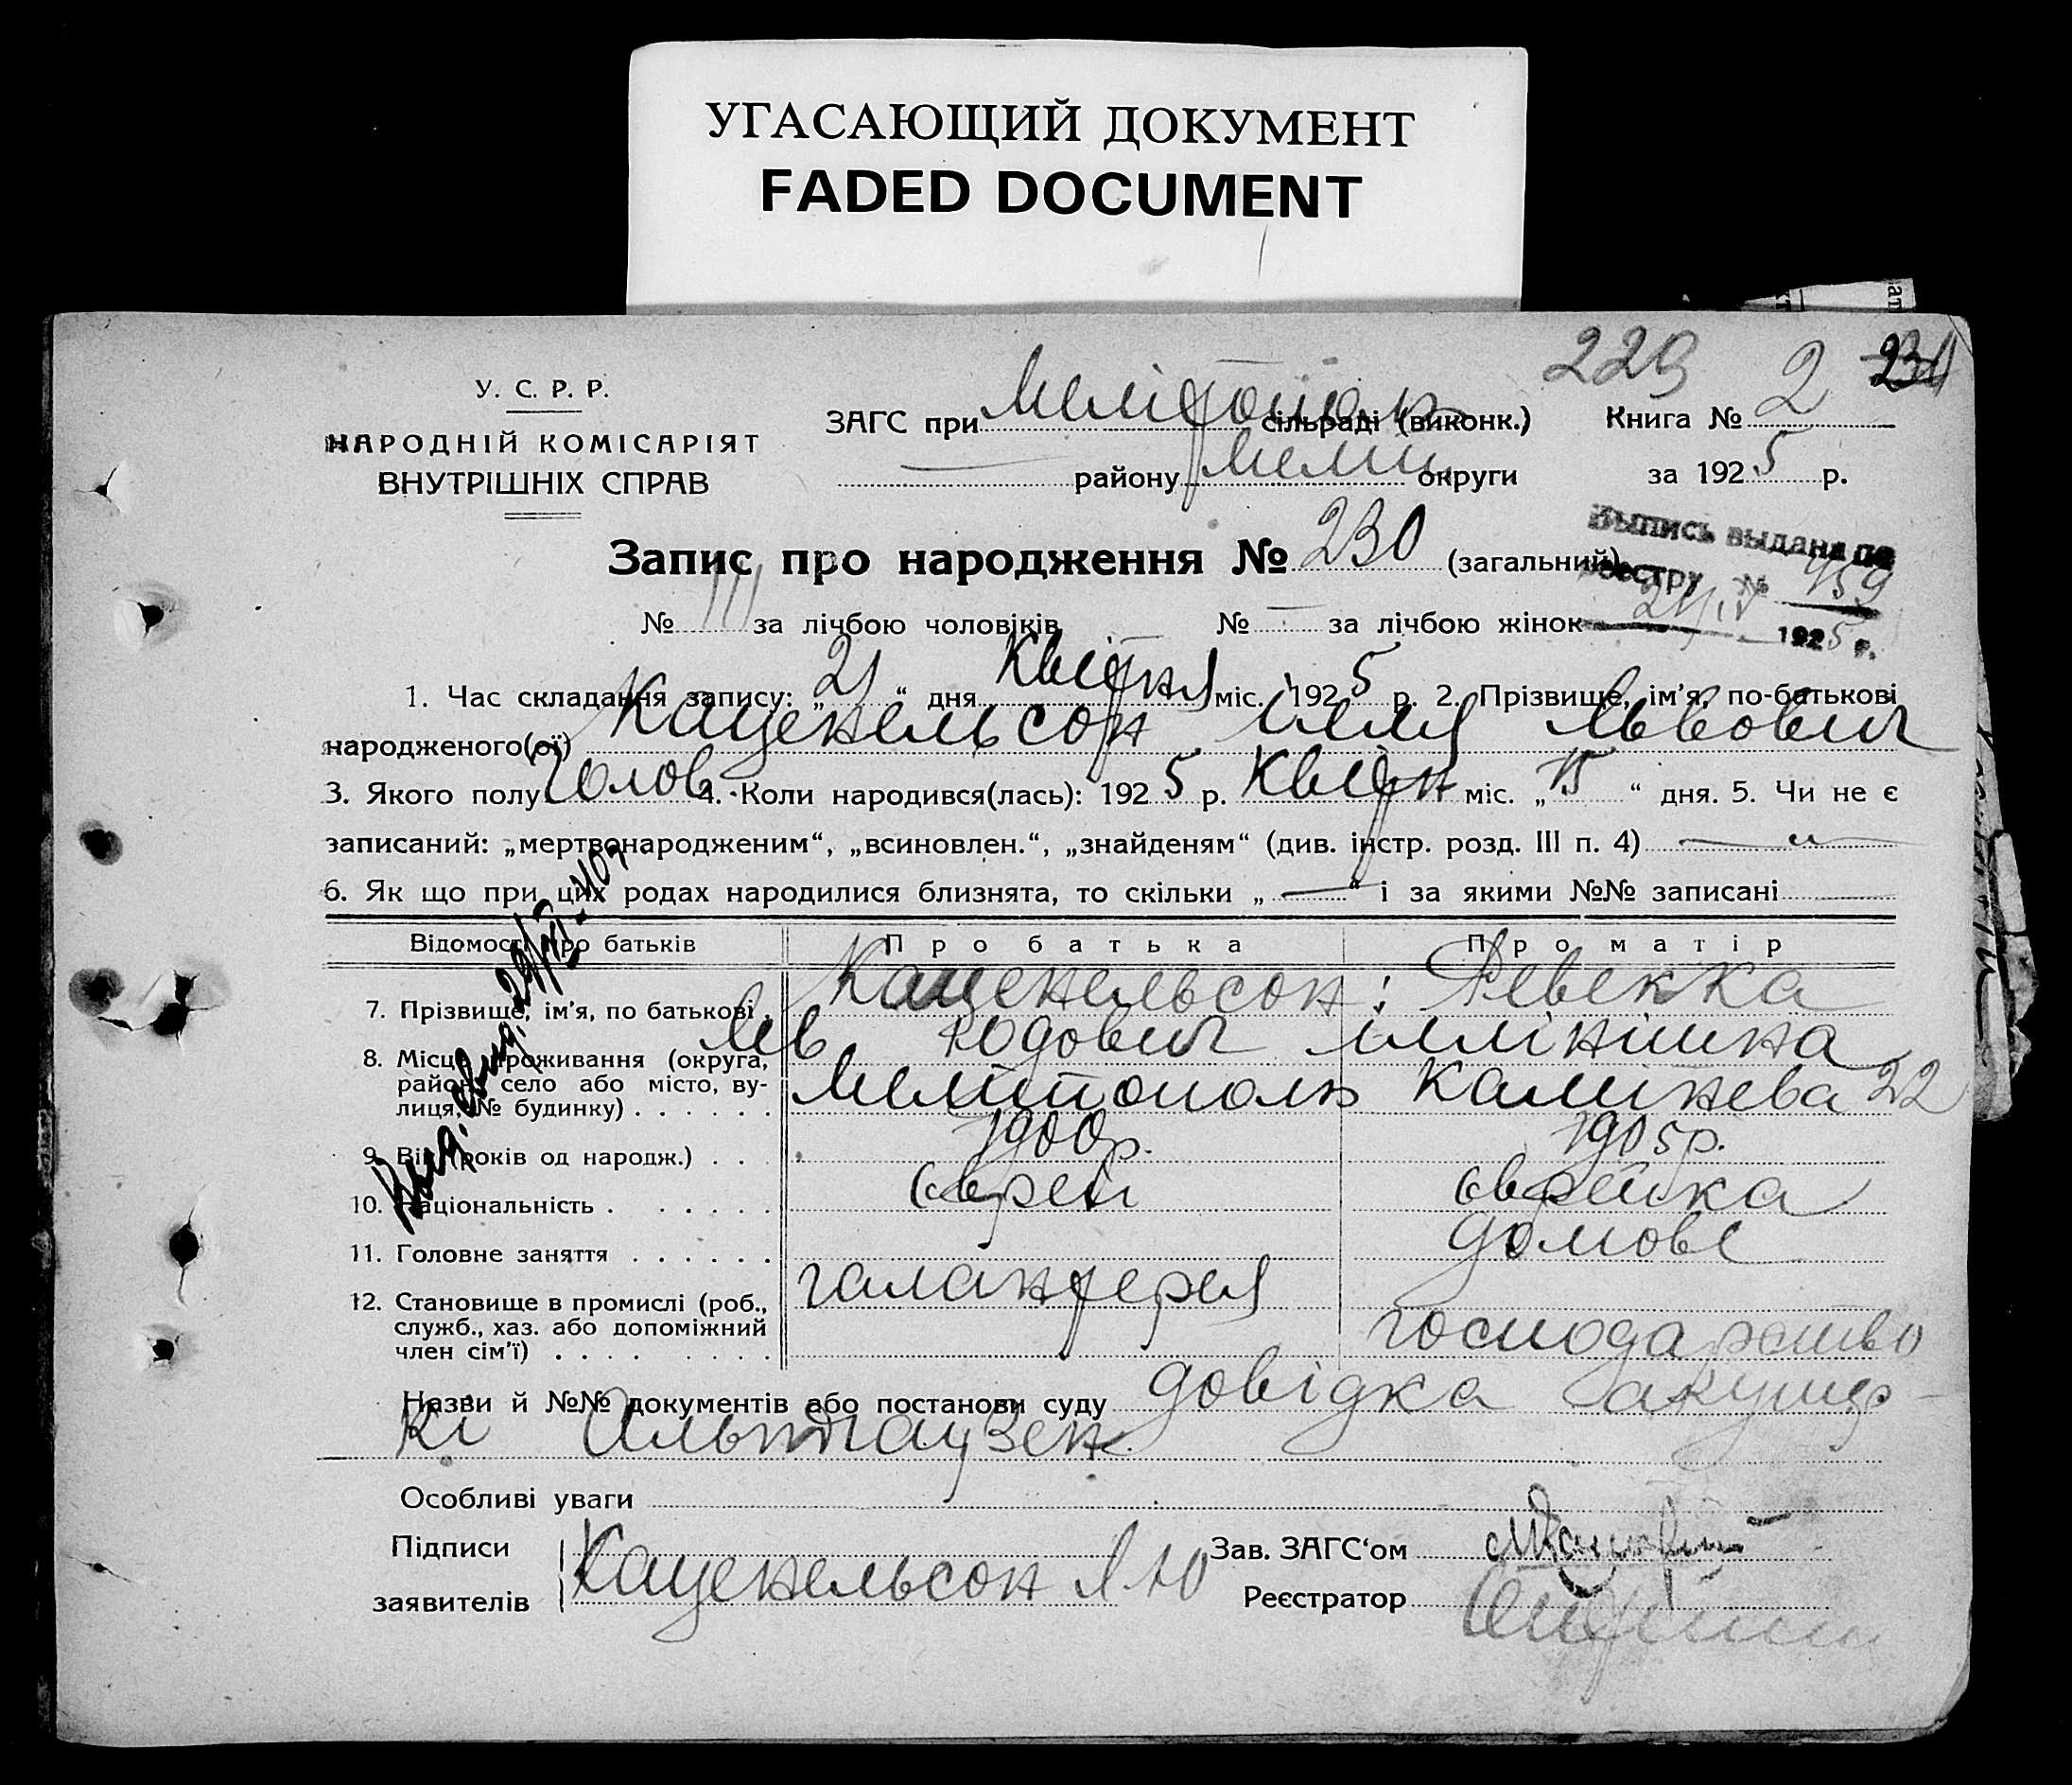 УГАСАЮЩИЙ ДОКУМЕНТ
FADED DOCUMENT
229 2 231
У. С. Р. Р.
НАРОДНІЙ КОМІСАРІЯТ
ВНУТРІШНІХ СПРАВ
ЗАГС при Мелітополь сільраді (виконк.) Книга № 2
району Мелит. округи за 1925 р.
Запис про народження № 230 (загальний)
Выпись выдана по
реестру № 459
1925 г.
№ 111 за лічбою чоловіків № — за лічбою жінок
1. Час складання запису: „21“ дня Квітня міс. 1925 р. 2. Прізвище, ім'я, по-батькові
народженого(ої) Каценельсон Ілля Львович
3. Якого полу Чолов. 4. Коли народився(лась): 1925 р. Квітн міс. „15“ дня. 5. Чи не є
записаний: „мертвонародженим“, „всиновлен.“, „знайденям“ (див. інстр. розд. III п. 4) — „ —
6. Як що при цих родах народилися близнята, то скільки „—“ і за якими №№ записані
Відомості про батьків Про батька Про матір
7. Прізвище, ім'я, по батькові Каценельсон: Ревекка
Лев Юдович Іллінішна
8. Місце проживання (округа, район, село або місто, вулиця, № будинку) Мелитополь Калінева 22
9. Вік (років од народж.) 1900р. 1905р.
10. Національність Єврей Єврейка
11. Головне заняття домове
галантерея
12. Становище в промислі (роб., служб., хаз. або допоміжний член сім'ї) господарство
Назви й №№ документів або постанови суду довідка акушер-
кі Альтгаузен
Особливі уваги
Підписи
заявителів Каценельсон Л Ю
Зав. ЗАГС'ом
Реєстратор